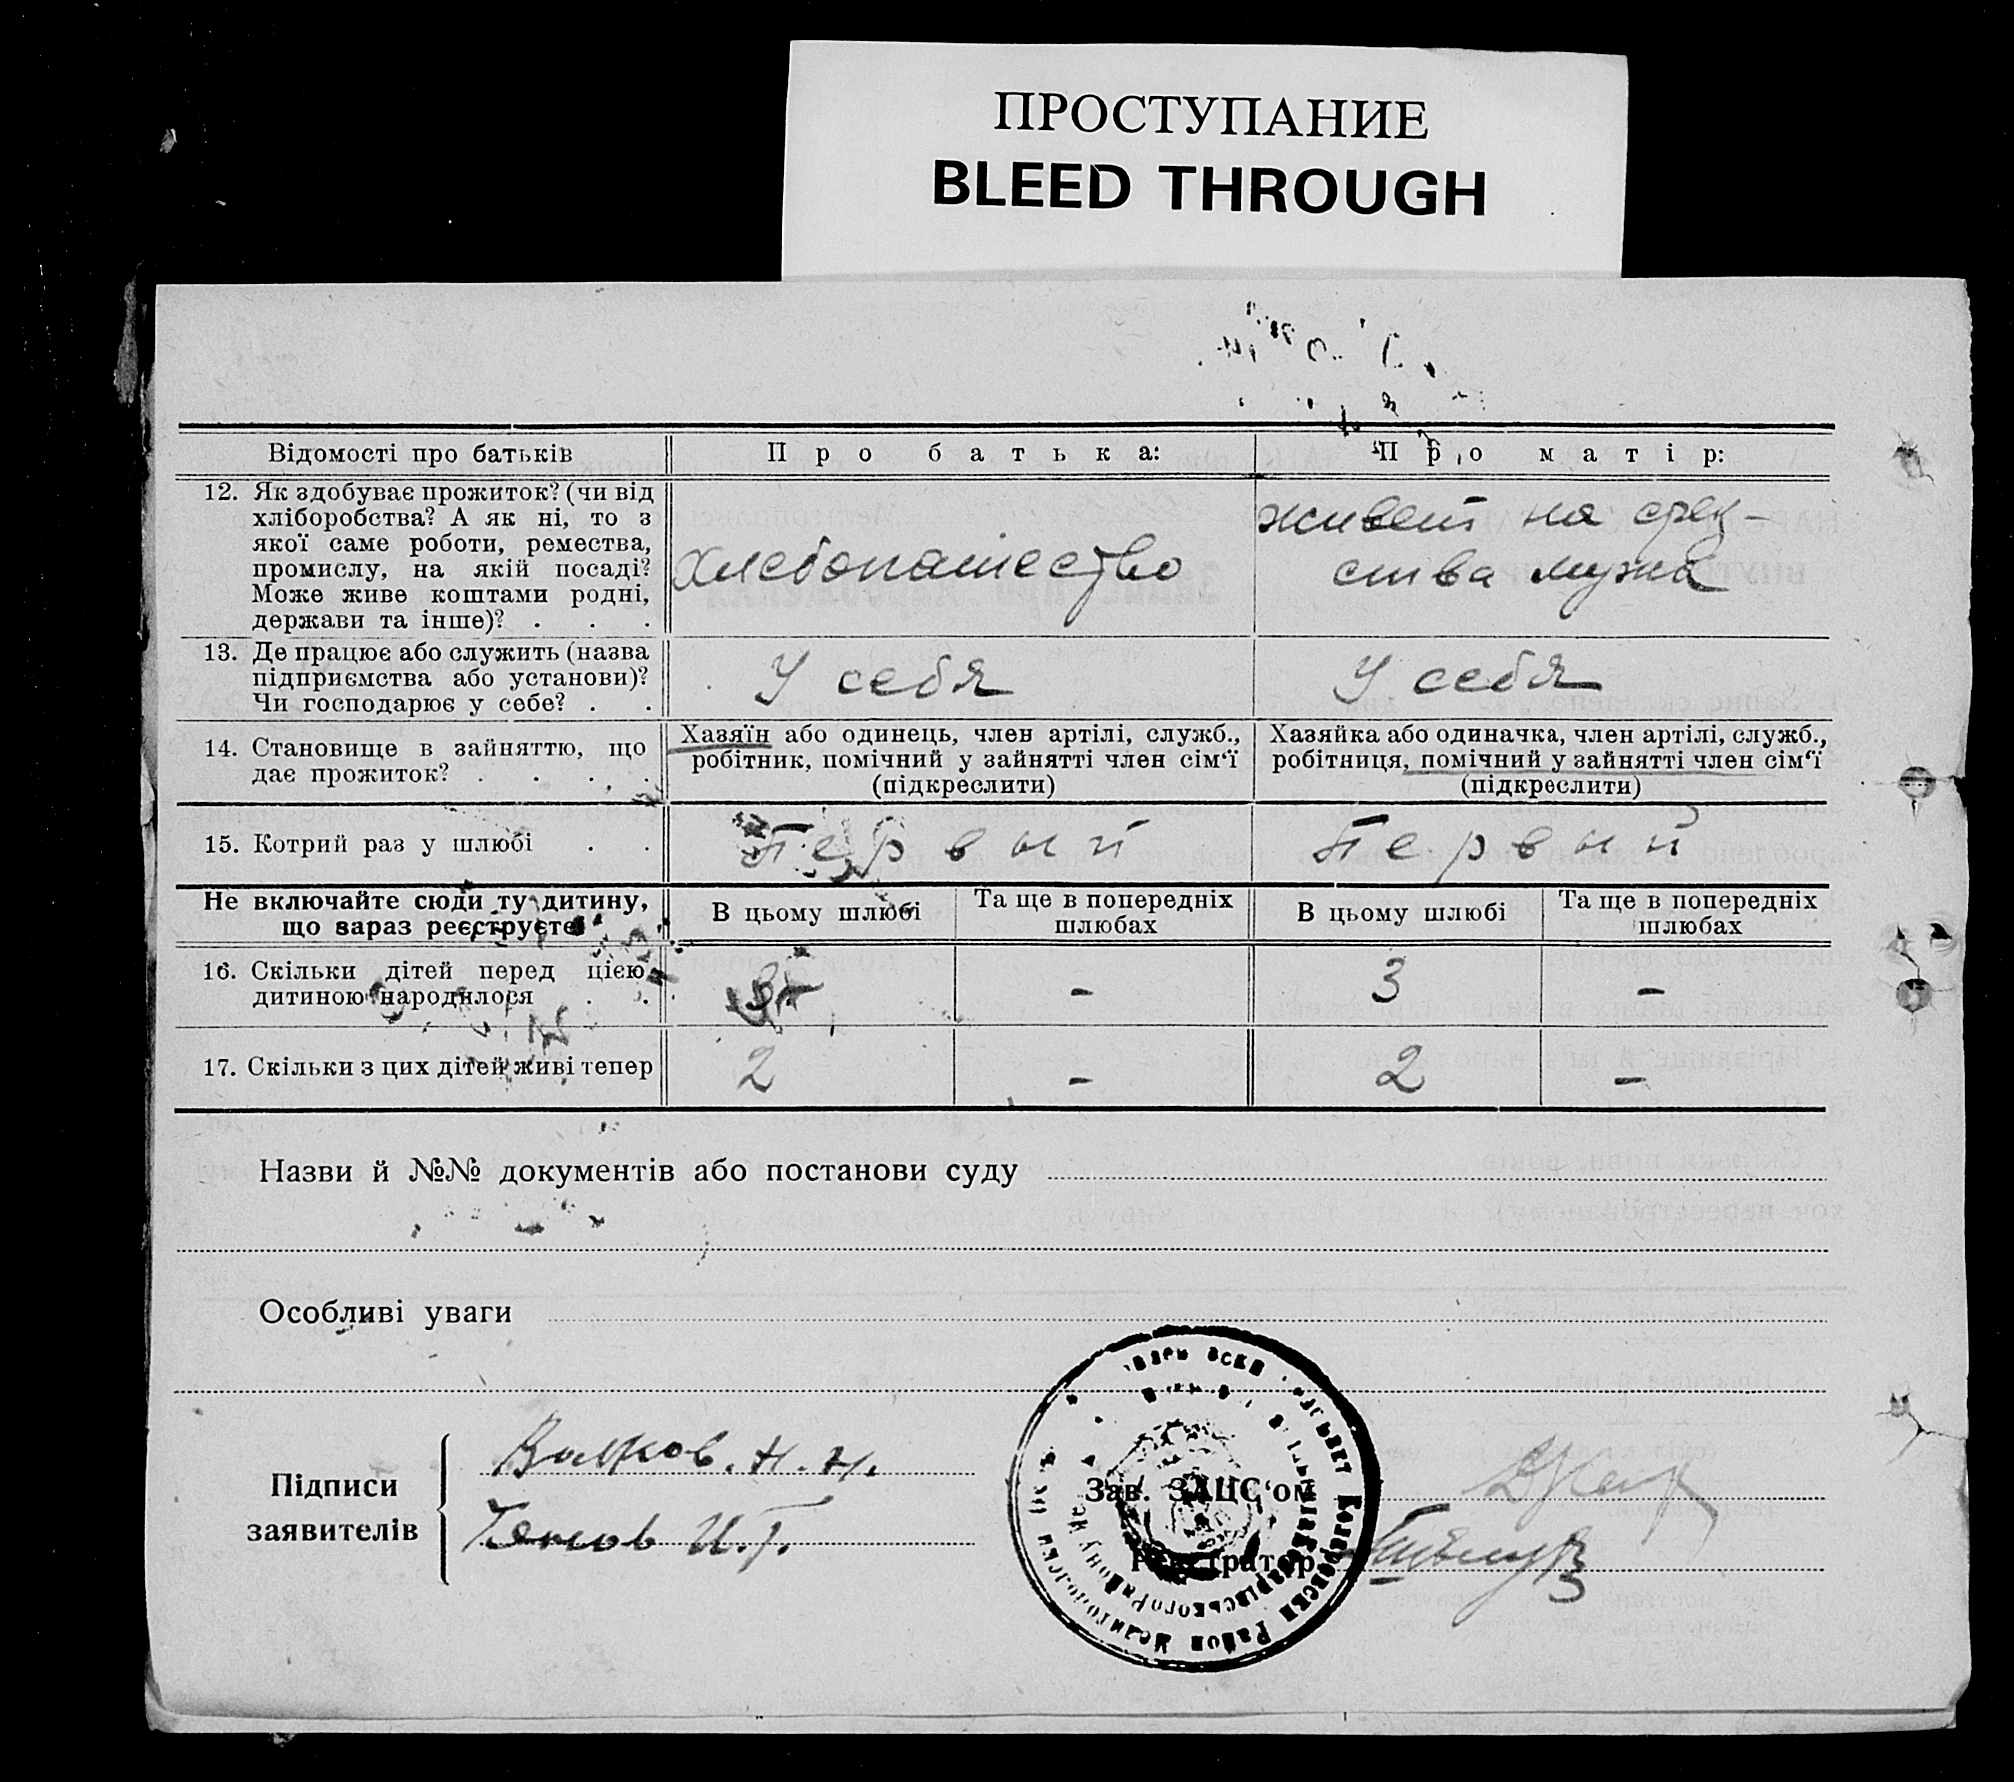 ПРОСТУПАНИЕ
BLEED THROUGH
Відомості про батьків
Про батька:
Про матір:
12. Як здобуває прожиток? (чи від
хліборобства? А як ні, то з
якої саме роботи, ремества,
промислу, на якій посаді?
Може живе коштами родні,
держави та інше)? . . .
хлебопашество
живет на сред-
ства мужа
13. Де працює або служить (назва
підприємства або установи)?
Чи господарює у себе? . .
У себя
У себя
14. Становище в зайняттю, що
дає прожиток? . . . .
Хазяїн або одинець, член артілі, служб.,
робітник, помічний у зайнятті член сім‘ї
(підкреслити)
Хазяйка або одиначка, член артілі, служб.,
робітниця, помічний у зайнятті член сім‘ї
(підкреслити)
15. Котрий раз у шлюбі . .
Первый
Первый
Не включайте сюди ту дитину,
що зараз реєструєте
В цьому шлюбі
Та ще в попередніх
шлюбах
В цьому шлюбі
Та ще в попередніх
шлюбах
16. Скільки дітей перед цією
дитиною народилося . .
3
-
3
-
17. Скільки з цих дітей живі тепер
2
-
2
-
Назви й №№ документів або постанови суду
Особливі уваги
Підписи
заявителів
Волков. Н. Н.
И. Г.
Зав. ЗАЦС‘ом
Реєстратор